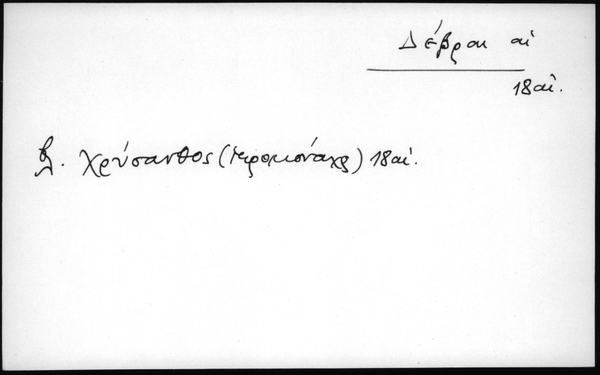 Δέβραι αἱ
18αἰ.
βλ. Χρύσανθος (ἱερομονάχος) 18αἰ.